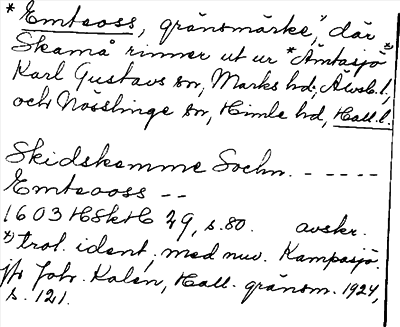 *Emtaoss, gränsmärke, "där
Skamå rinner ut ur *Ämtasjö"
Karl Gustavs sn, Marks hd, Älvsb. l,
och Nösslinge sn, Himle hd, Hall. l.
Skidskemme Sochn. - - - - -
Emtaoss - -
1603 HSkH 29, s. 80. avskr.
x) trol. ident. med nuv. Kampasjö.
jfr Joh. Kalén, Hall. gränsm. 1924,
s. 121.